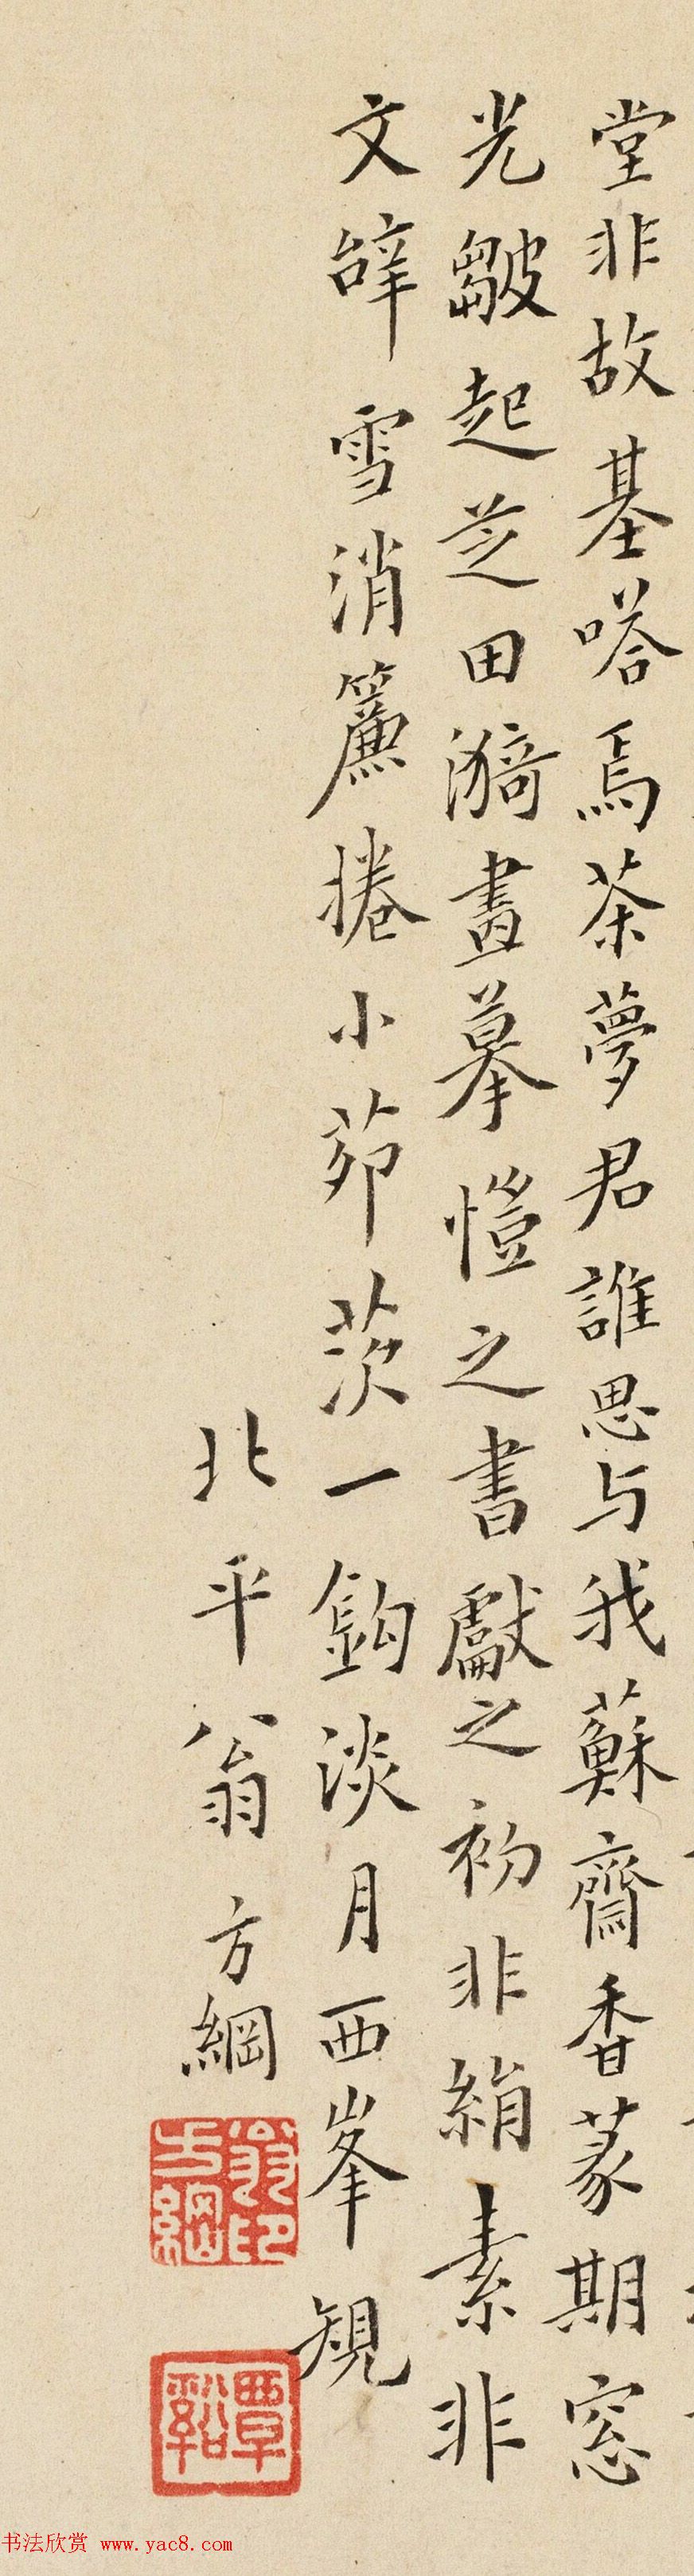 堂非故基嗒焉茶夢君誰思与我蘇齋香篆期窓
光皺起芝田漪畫摹愷之書獻之初非絹素非
文辭雪消簾捲小茆茨一鉤淡月西峯規
北平翁方綱
翁方綱印
覃谿
书法欣赏 www.yac8.com